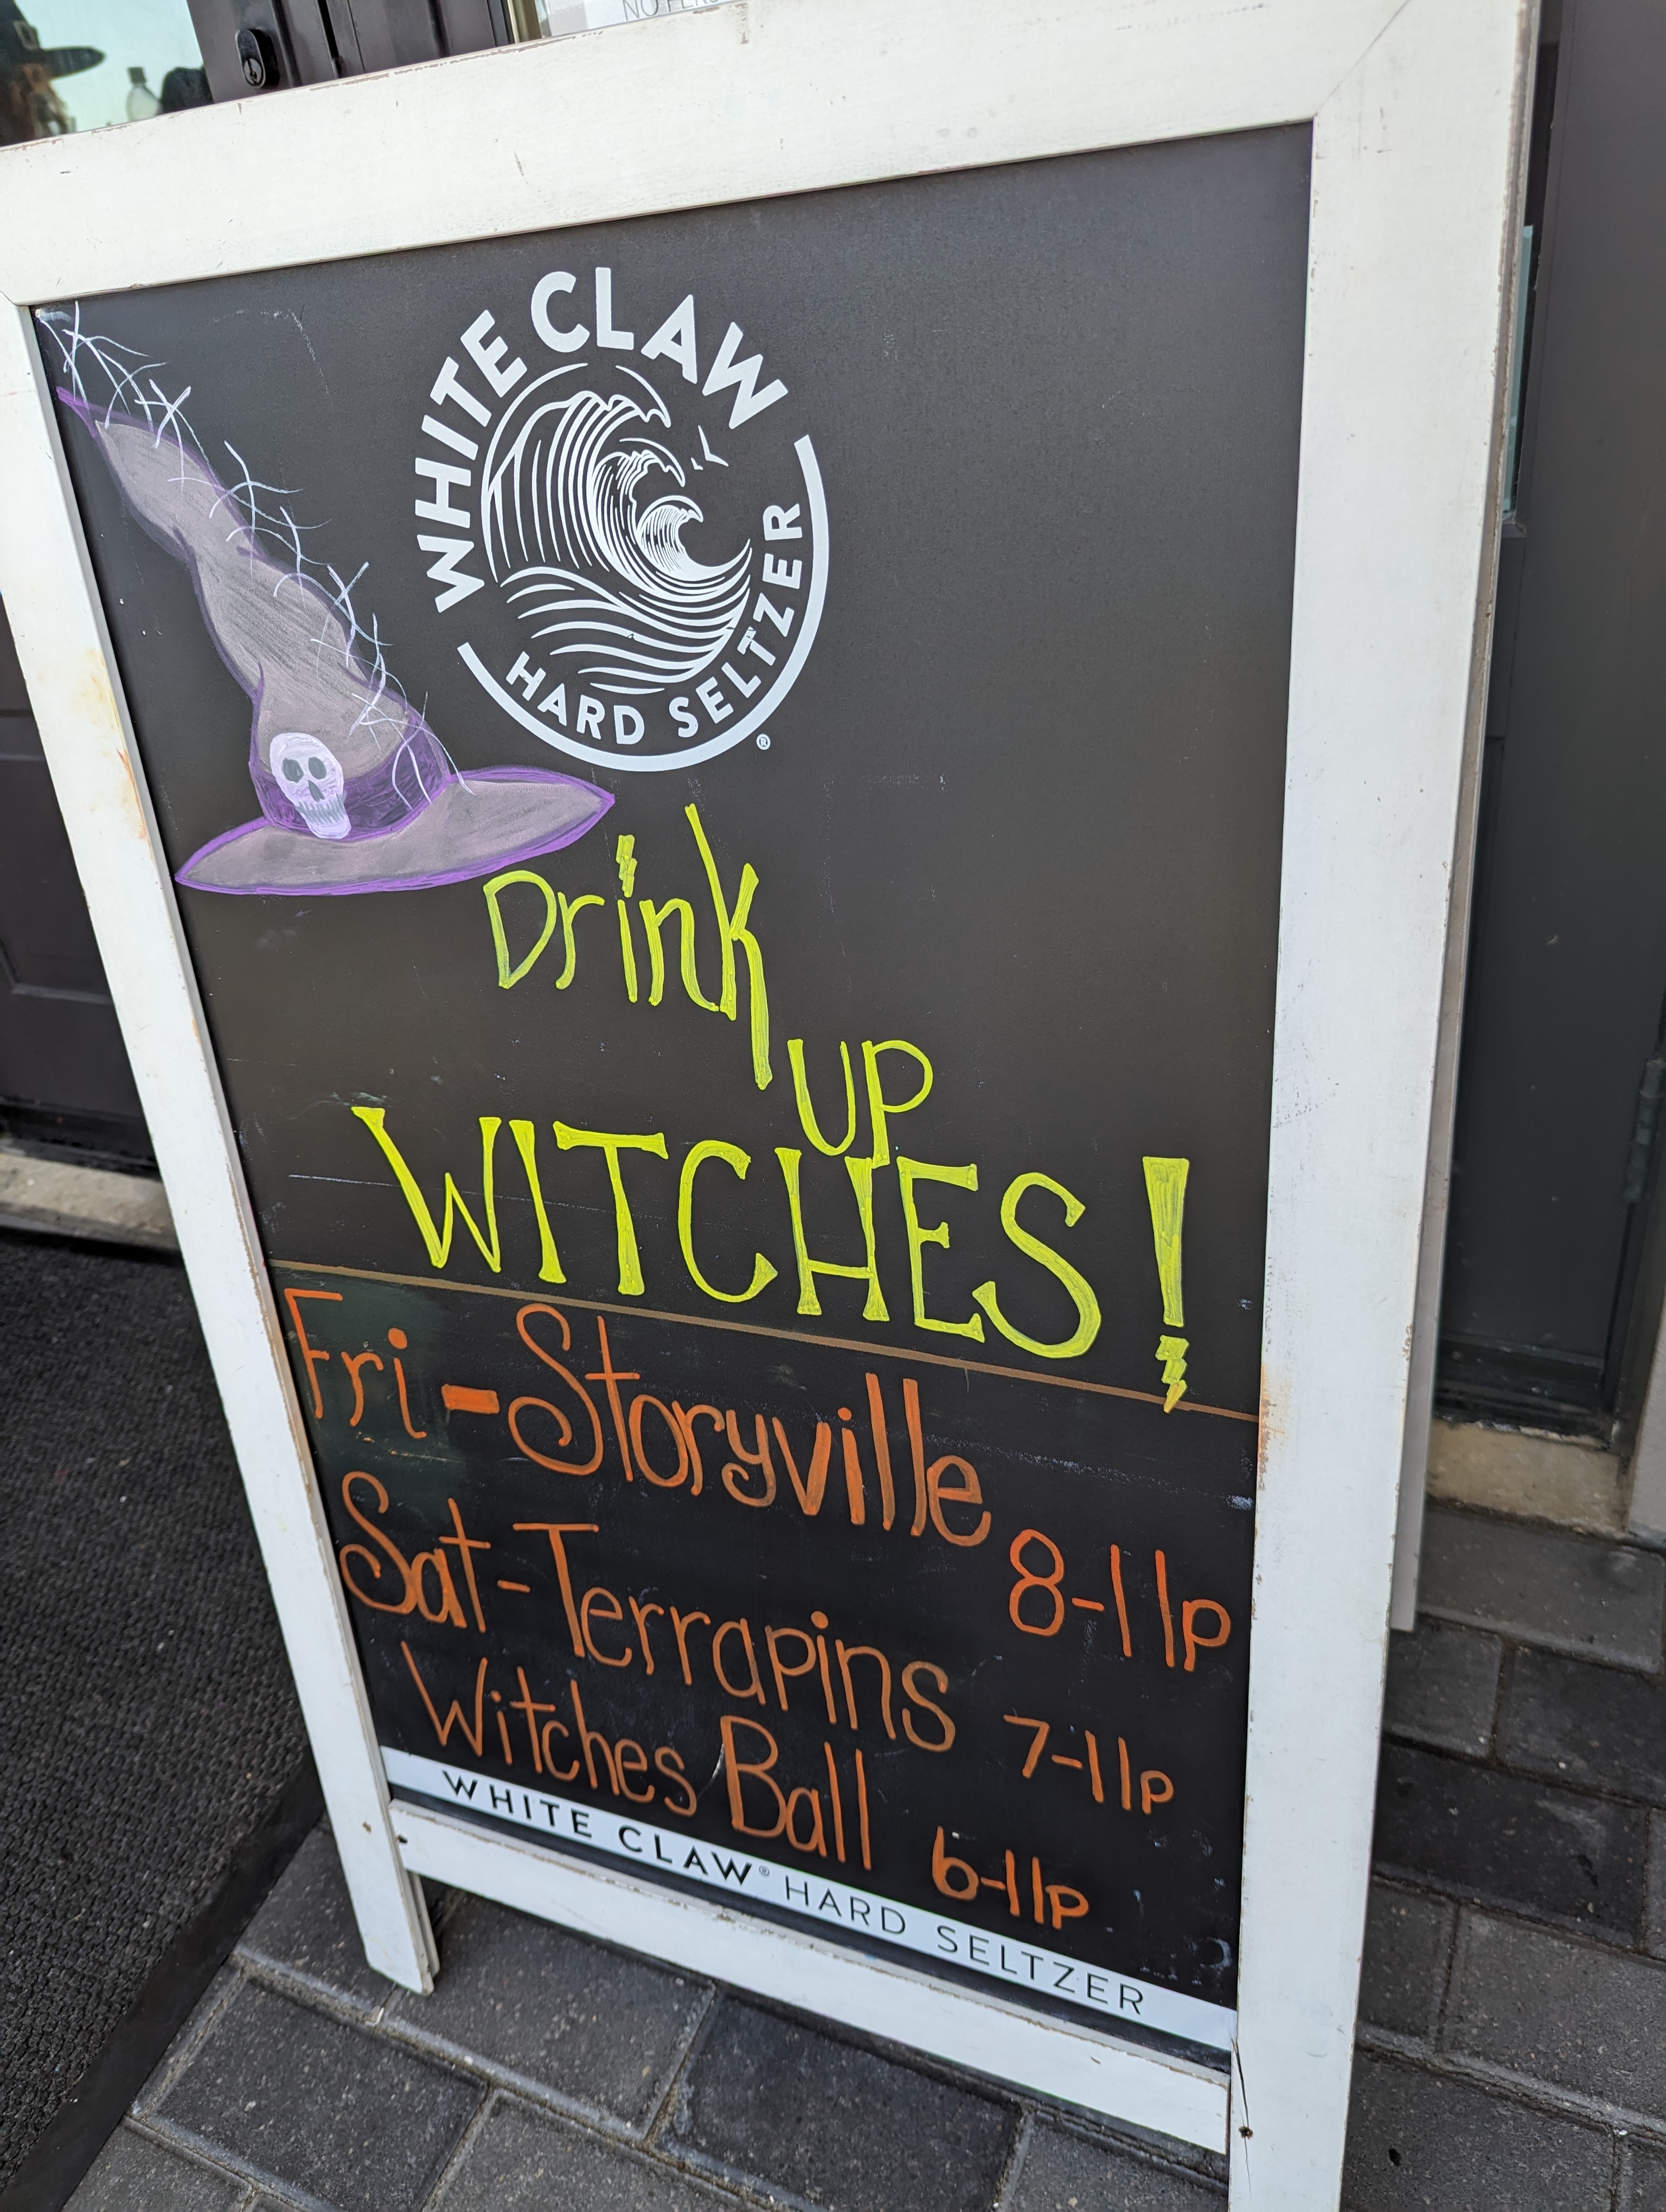 WHITE CLAW
HARD SELTZER
®
Drink
UP
WITCHES!
Fri-Storyville 8-11p
Sat-Terrapins 7-11p
Witches Ball 6-11p
WHITE CLAW® HARD SELTZER